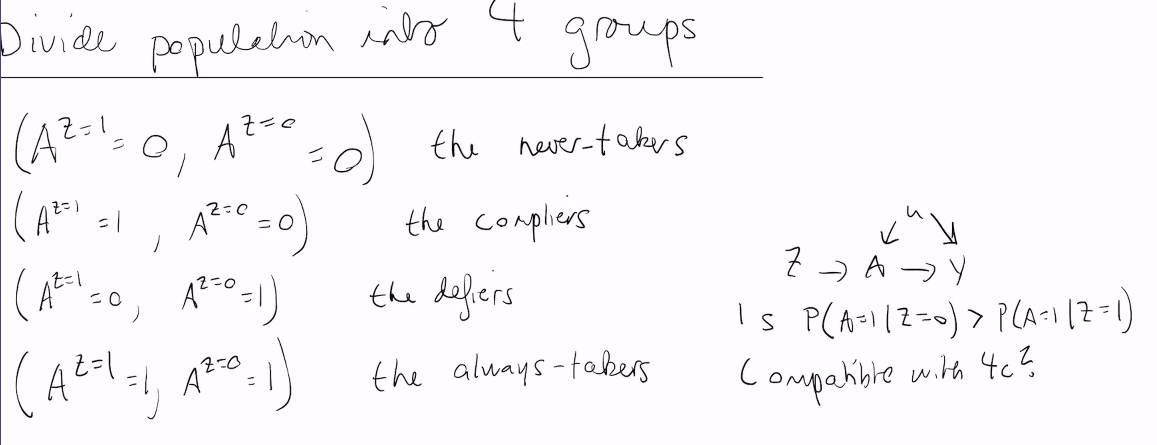 Divide population into 4 groups
(A^{Z=1} = 0, A^{Z=0} = 0) the never-takers
(A^{Z=1} = 1, A^{Z=0} = 0) the compliers
(A^{Z=1} = 0, A^{Z=0} = 1) the defiers
(A^{Z=1} = 1, A^{Z=0} = 1) the always-takers
u
↙ ↘
Z → A → Y
Is P(A=1|Z=0) > P(A=1|Z=1)
Compatible with 4c?